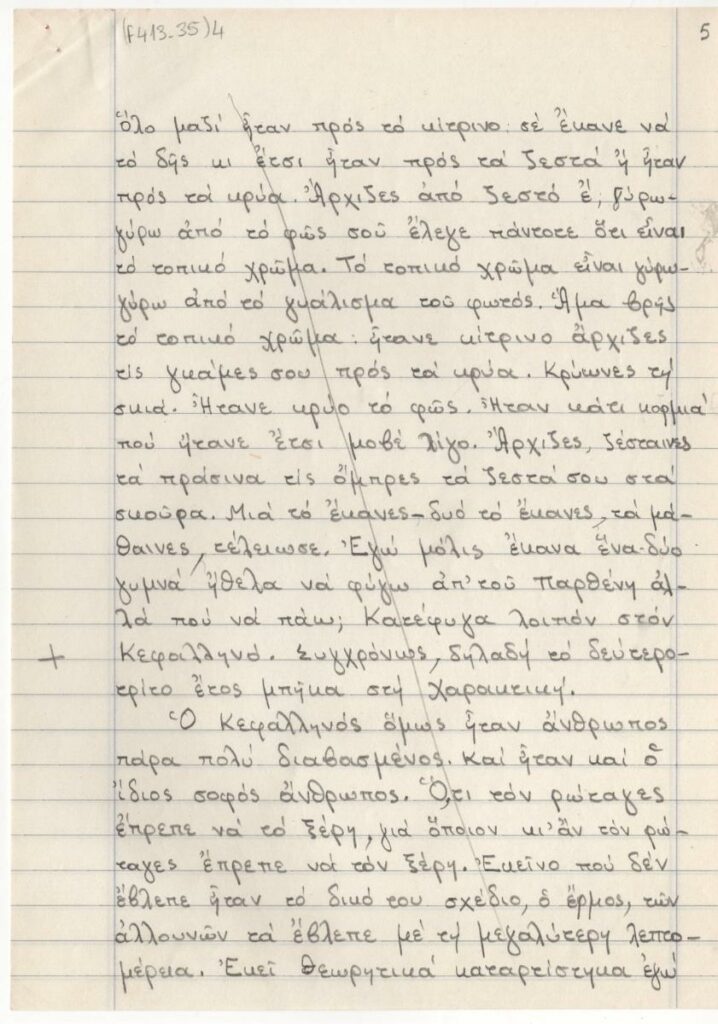 (F413-35)4
5
ὅλο μαζί ἦταν πρός τό κίτρινο: σέ ἔκανε νά
τό δῆς κι ἔτσι ἦταν πρός τά ζεστά ἤ ἦταν
πρός τά κρύα. Ἄρχιζες ἀπό ζεστό ἐ; γύρω-
γύρω ἀπό τό φῶς σοῦ ἔλεγε πάντοτε ὅτι εἶναι
τό τοπικό χρῶμα. Τό τοπικό χρῶμα εἶναι γύρω-
γύρω ἀπό τό γυάλισμα τοῦ φωτός. Ἅμα βρῆς
τό τοπικό χρῶμα: ἤτανε κίτρινο ἄρχιζες
τίς γκάμες σου πρός τά κρύα. Κρύωνες τή
σκιά. Ἤτανε κρύο τό φῶς. Ἦταν κάτι κορμιά
πού ἤτανε ἔτσι μοβέ λίγο. Ἄρχιζες, ζέσταινες
τά πράσινα τίς ὄμπρες τά ζεστά σου στά
σκοῦρα. Μιά τό ἔκανες-δυό τό ἔκανες, τά μά-
θαινες, τέλειωσε. Ἐγώ μόλις ἔκανα ἕνα-δύο
γυμνά ἤθελα νά φύγω ἀπ' τοῦ Παρθένη ἀλ-
λά πού νά πάω; Κατέφυγα λοιπόν στόν
+ Κεφαλληνό. Συγχρόνως, δηλαδή τό δεύτερο-
τρίτο ἔτος μπῆκα στή Χαρακτική.
Ὁ Κεφαλληνός ὅμως ἦταν ἄνθρωπος
πάρα πολύ διαβασμένος. Καί ἦταν καί ὁ
ἴδιος σοφός ἄνθρωπος. Ὅ,τι τόν ρώταγες
ἔπρεπε νά τό ξέρη, γιά ὅποιον κι' ἄν τόν ρώ-
ταγες ἔπρεπε νά τόν ξέρη. Ἐκεῖνο πού δέν
ἔβλεπε ἦταν τό δικό του σχέδιο, ὁ ἔρμος, τῶν
ἀλλουνῶν τά ἔβλεπε μέ τή μεγαλύτερη λεπτο-
μέρεια. Ἐκεῖ θεωρητικά καταρτίστηκα ἐγώ